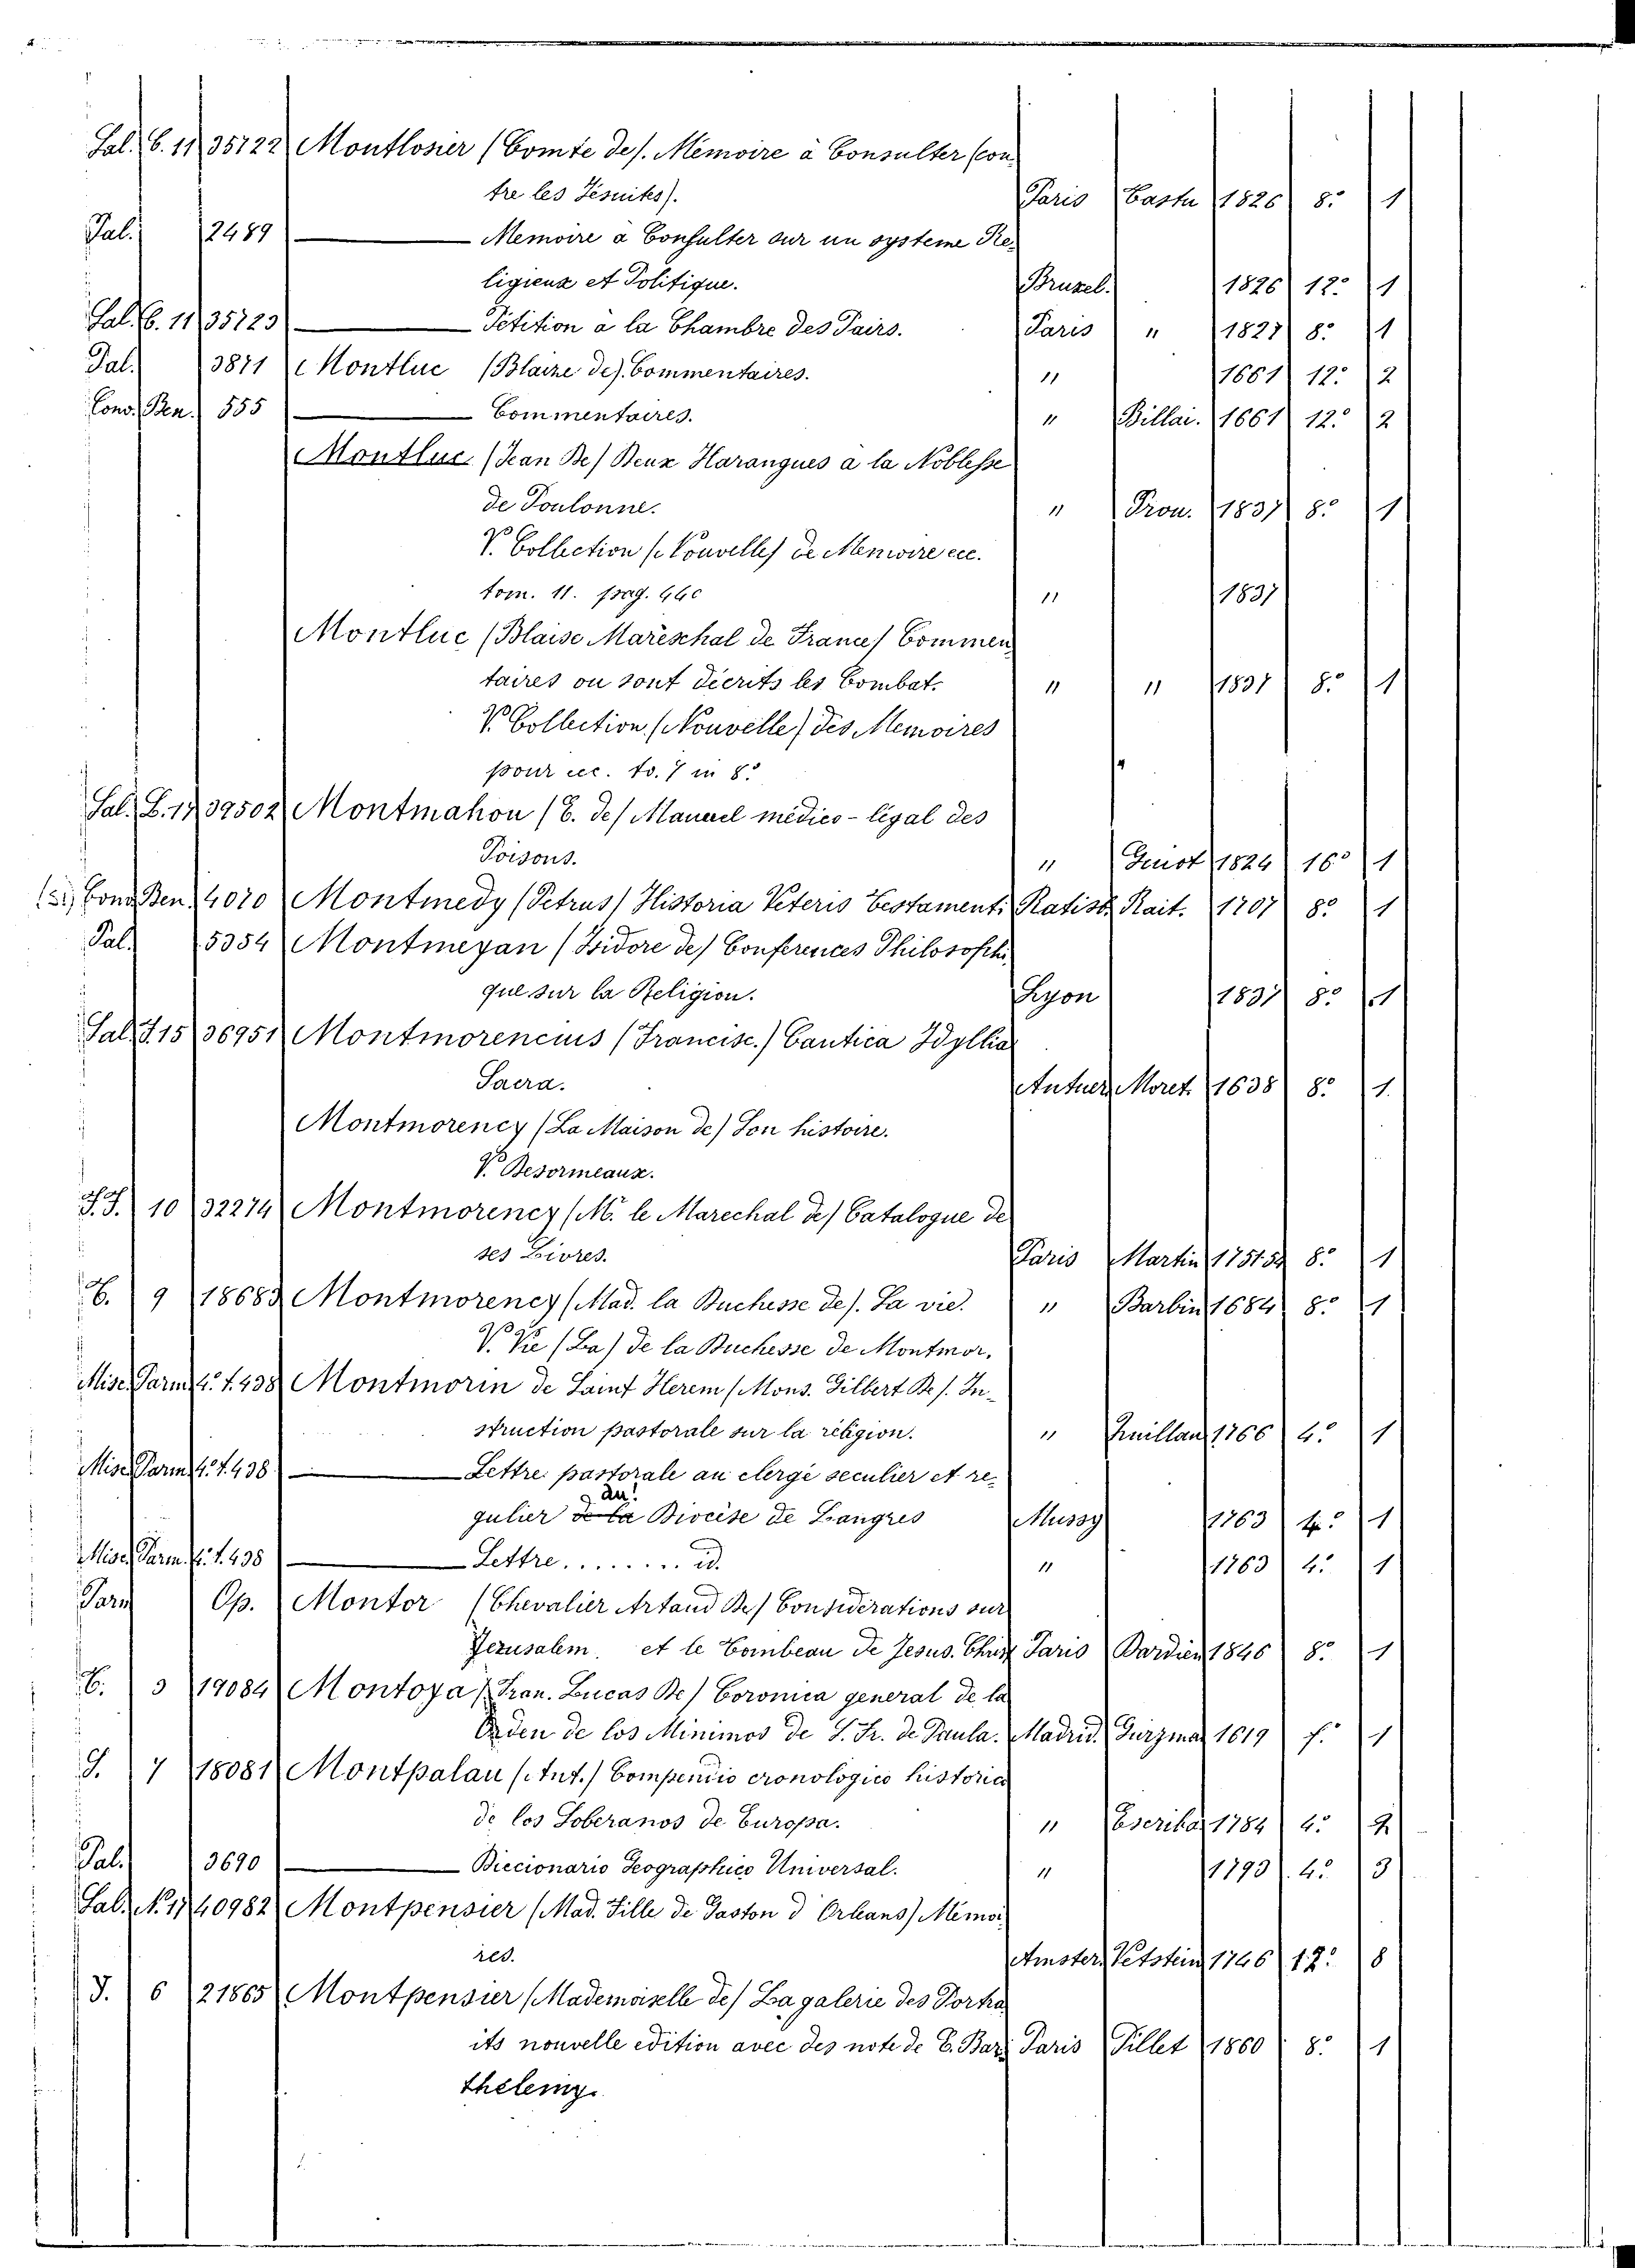 Sal. C. 11 35722 Montlosier (Comte de). Mémoire à Consulter (con
tre les Jésuites). Paris Castu 1826 8.° 1
Pal. 2489 — Memoire a Consulter sur un systeme Re-
ligieux et Politique. Bruxel. 1826 12.° 1
Sal. C. 11 35723 — Petition a la Chambre des Pairs. Paris " 1827 8.° 1
Pal. 3871 Montluc (Blaize de). Commentaires. " 1661 12.° 2
Conv. Ben. 555 — Commentaires. " Billai. 1661 12.° 2
Montluc (Jean De) Deux Harangues a la Noblesse
de Poulonne. " Prou. 1837 8.° 1
V. Collection (Nouvelle) de Memoire ecc.
tom. 11. pag. 440 " 1837
Montluc (Blaise Mareschal de France) Commen
taires ou sont decrits les Combat. " " 1837 8.° 1
V. Collection (Nouvelle) des Memoires
pour ecc. to. 7 in 8.°
Sal. B. 17 39502 Montmahon (C. de) Manuel médico-légal des
Poisons. " 1824 16° 1
Conv. Ben. 4070 Montmedy (Petrus) Historia Veteris Testamenti Ratisb. Rait. 1707 8.° 1
Pal. 5354 Montmeyan (Isidore de) Conferences Philosophi
que sur la Religion. Lyon 1837 8.° 1
Sal. J. 15 36951 Montmorencius (Francisc.) Cantica Idyllia
Sacra. Antuer. Moret. 1638 8.° 1.
Montmorency (La Maison de) Son histoire.
V. Desormeaux.
J.J. 10 32274 Montmorency (M. le Marechal de) Catalogue de
ses Livres. Paris Martin 1751.52 8.° 1
C. 9 18683 Montmorency (Mad. la Duchesse de). Sa vie. " Barbin 1684 8.° 1
V. Vie (La) de la Duchesse de Montmor.
Misc. Parm. 4.° t. 438 Montmorin de Saint Herem (Mons. Gilbert De). In-
struction pastorale sur la religion. " 1766 4.° 1
Misc. Parm. 4.° t. 438 — Lettre pastorale au clergé seculier et re-
du!
gulier de la Diocése de Langres Mussy 1763 4.° 1
Misc. Parm. 4.° t. 438 — Lettre........ id. " 1763 4.° 1
Parm Op. Montor (Chevalier Artaud De) Considérations sur
Jerusalem. et le Tombeau de Jesus. Christ Paris Bardien 1846 8.° 1
C. 3 19084 Montoya (Fran. Lucas De) Coronica general de la
Orden de los Minimos de S. Fr. de Paula. Madrid. 1619 f.° 1
J. 7 18081 Montpalau (Ant.) Compendio cronologico historico
de los Soberanos de Europa. " Escriba. 1784 4.° 2
Pal. 3690 — Diccionario Geographico Universal. " 1793. 4.° 3
Sal. N. 17 40982 Montpensier (Mad. Fille de Gaston d'Orleans) Memoi
res. Amster. Vetstein 1746 12.° 8
J. 6 21865 Montpensier (Mademoiselle de) La galerie des Portra
its nouvelle edition avec des note de E. Bar Paris Pillet 1860 8.° 1
thélemy.